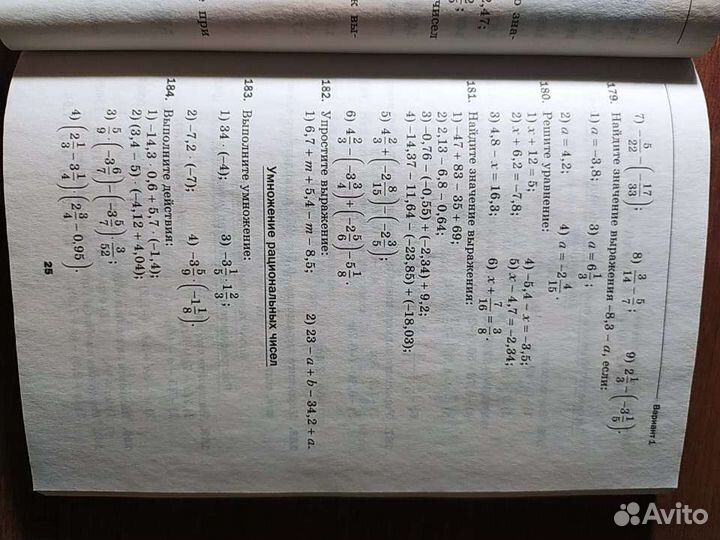 Вариант 1
7) −5/22 − (−17/33);  8) 3/14 − 5/7;  9) 2 1/3 − (−3 1/5).
179. Найдите значение выражения −8,3 − a, если:
1) a = −3,8;  3) a = 6 1/3;
2) a = 4,2;  4) a = −2 4/15.
180. Решите уравнение:
1) x + 12 = 5;  4) −5,4 − x = −3,5;
2) x + 6,2 = −7,8;  5) x − 4,7 = −2,34;
3) 4,8 − x = 16,3;  6) x + 7/16 = 3/8.
181. Найдите значение выражения:
1) −47 + 83 − 35 + 69;
2) 2,13 − 6,8 − 0,64;
3) −0,76 − (−0,55) + (−2,34) + 9,2;
4) −14,37 − 11,64 − (−23,85) + (−18,03);
5) 4 2/3 + (−2 8/15) − (−2 3/5);
6) 4 2/3 − (−3 3/4) + (−2 5/6) − 5 5/8.
182. Упростите выражение:
1) 6,7 + m + 5,4 − m − 8,5;  2) 23 − a + b − 34,2 + a.
Умножение рациональных чисел
183. Выполните умножение:
1) 34 · (−4);  3) −3 1/5 · 1 2/3;
2) −7,2 · (−7);  4) −3 5/9 · (−1 1/8).
184. Выполните действия:
1) −14,3 · 0,6 + 5,7 · (−1,4);
2) (3,4 − 5) · (−4,12 + 4,04);
3) 5/9 · (−3 6/7) − (−3 5/7) · 3/52;
4) (2 1/3 − 3 1/4) · (2 3/4 − 0,95).
25
2,47;
чисел
к вы-
е при
Avito